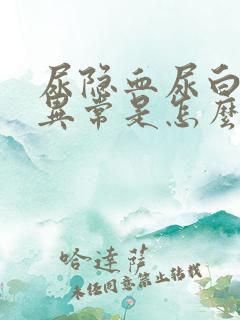 尿隐血尿白
異常是怎麽
哈達薩
未经同意禁止转载